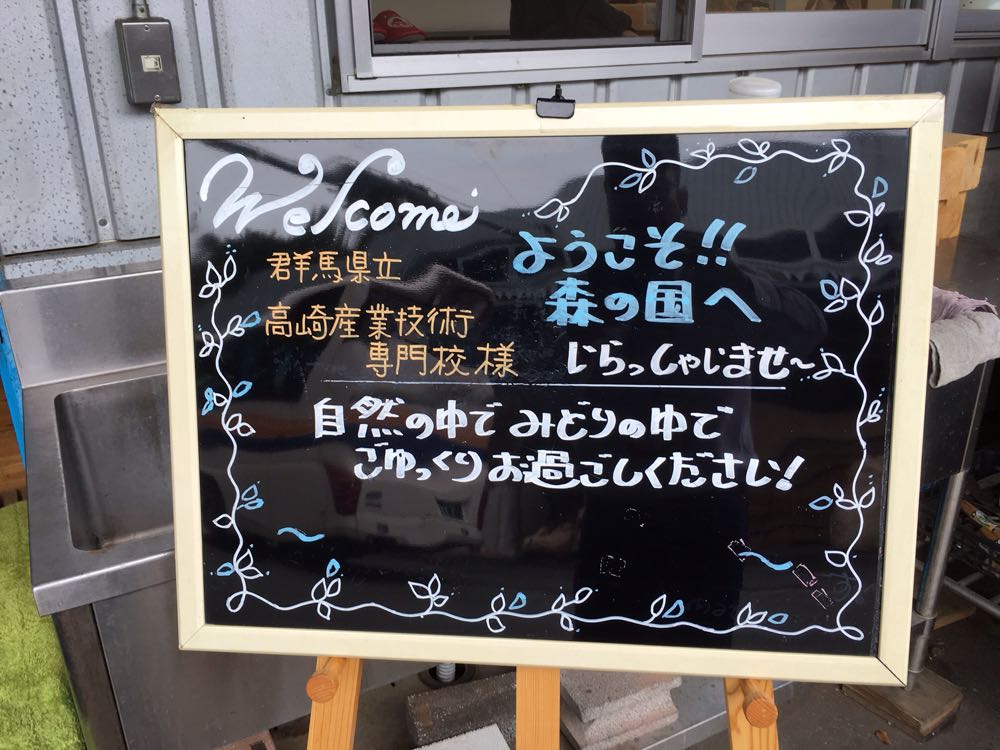 Welcome
群馬県立
高崎産業技術
専門校様
ようこそ!!
森の国へ
いらっしゃいませ〜
自然の中でみどりの中で
ごゆっくりお過ごしください!